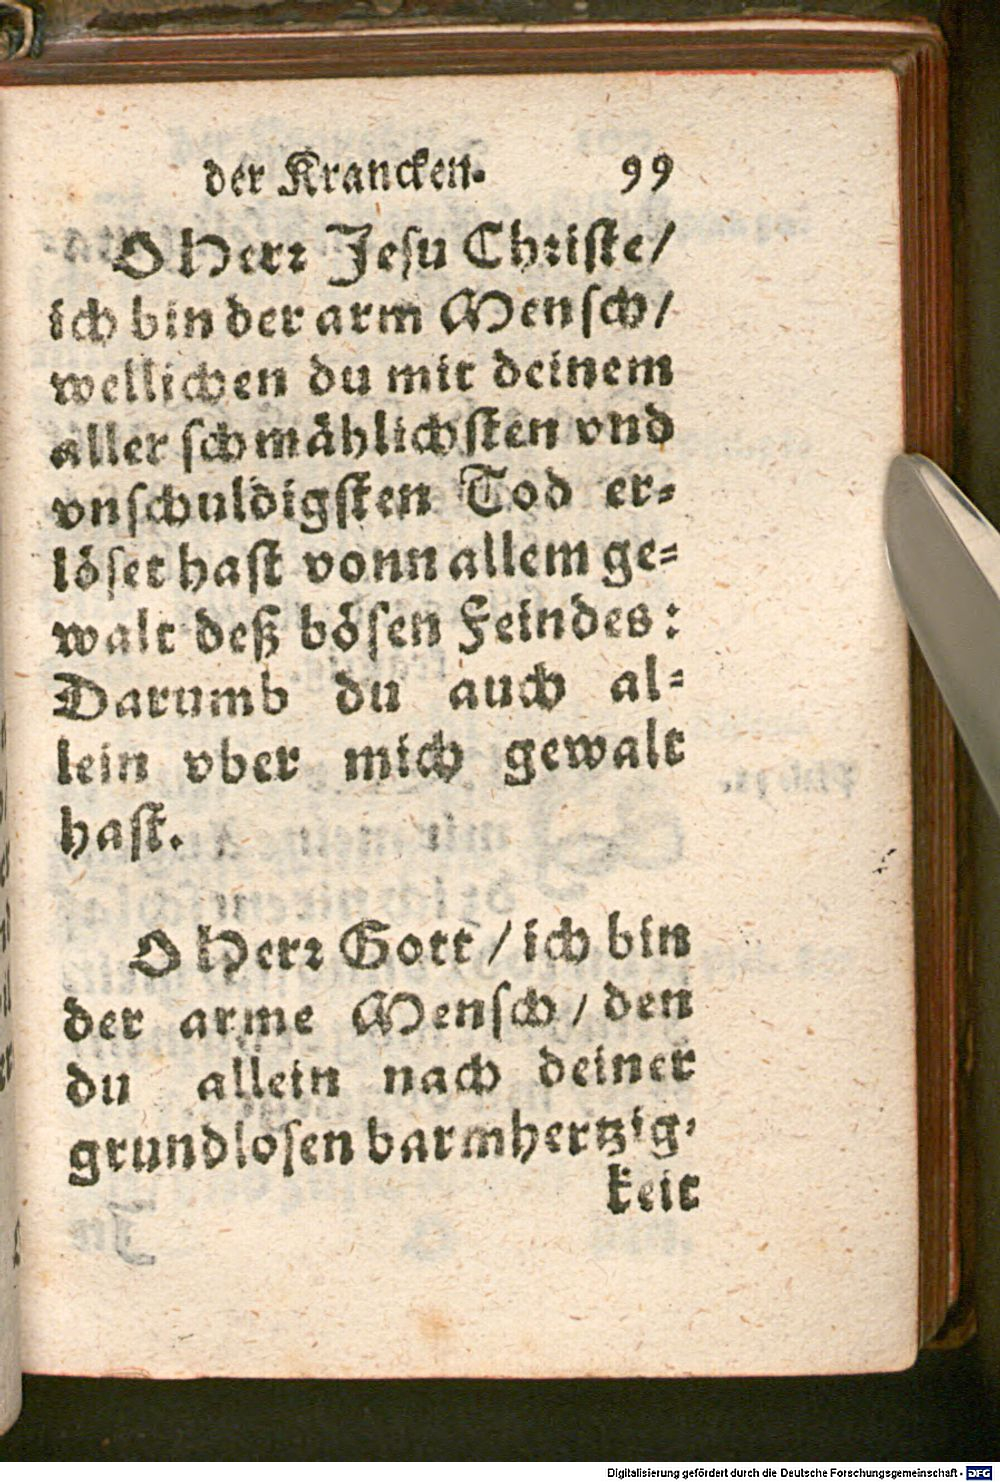 der Krancken. 99
O Herr Jesu Christe/
ich bin der arm Mensch/
wellichen du mit deinem
aller schmählichsten vnd
vnschuldigsten Tod er-
löset hast vonn allem ge-
walt deß bösen Feindes:
Darumb du auch al-
lein vber mich gewalt
hast.
O Herr Gott / ich bin
der arme Mensch / den
du allein nach deiner
grundlosen barmhertzig-
keit
Digitalisierung gefördert durch die Deutsche Forschungsgemeinschaft - DFG